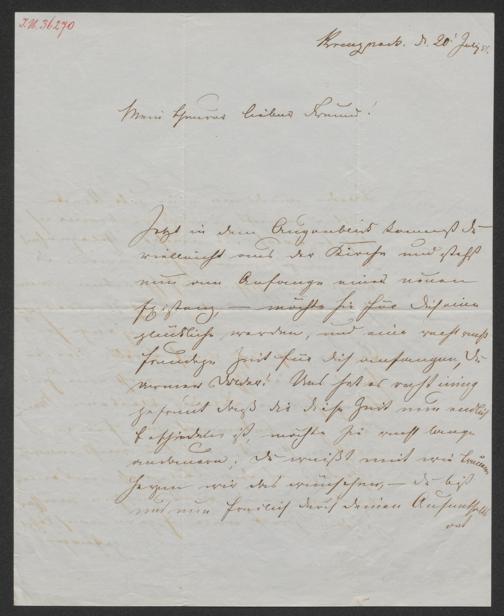 I.N. 36270
Kreuznach. d. 20t July
Mein theurer lieber Freund!
Jetzt in dem Augenblick kommst du
vielleicht aus der Kirche und stehst
nun am Anfange einer neuen
Existenz, — möchte sie für dich eine
glückliche werden, und eine recht
freudige Zeit für dich anfangen, du
armer Bruder! Uns hat es recht innig
gefreut daß dir diese Zeit nun endlich
beschieden ist, möchte sie recht lange
andauern; du weißt mit wie treuem
Herzen wir das wünschen, — du bist
uns nun freilich durch deinen Aufenthalts
ort